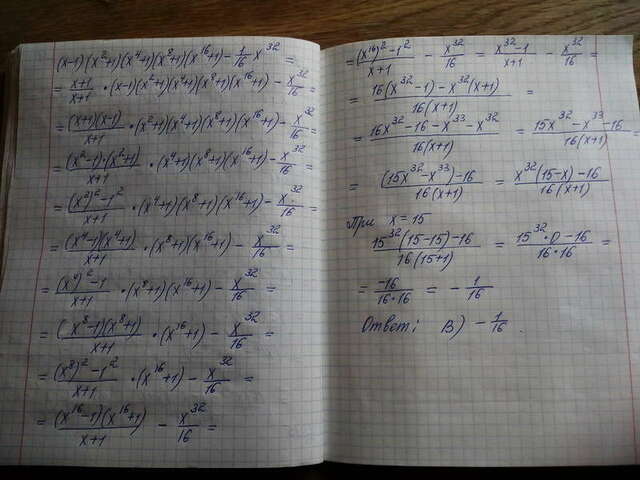 (x-1)(x²+1)(x⁴+1)(x⁸+1)(x¹⁶+1) - 1/16 x³² =
= (x+1)/(x+1) · (x-1)(x²+1)(x⁴+1)(x⁸+1)(x¹⁶+1) - x³²/16 =
= (x+1)(x-1)/(x+1) · (x²+1)(x⁴+1)(x⁸+1)(x¹⁶+1) - x³²/16 =
= (x²-1)·(x²+1)/(x+1) · (x⁴+1)(x⁸+1)(x¹⁶+1) - x³²/16 =
= ((x²)²-1²)/(x+1) · (x⁴+1)(x⁸+1)(x¹⁶+1) - x³²/16 =
= (x⁴-1)(x⁴+1)/(x+1) · (x⁸+1)(x¹⁶+1) - x³²/16 =
= ((x⁴)²-1)/(x+1) · (x⁸+1)(x¹⁶+1) - x³²/16 =
= (x⁸-1)(x⁸+1)/(x+1) · (x¹⁶+1) - x³²/16 =
= ((x⁸)²-1²)/(x+1) · (x¹⁶+1) - x³²/16 =
= (x¹⁶-1)(x¹⁶+1)/(x+1) - x³²/16 =
= ((x¹⁶)²-1²)/(x+1) - x³²/16 = (x³²-1)/(x+1) - x³²/16 =
= (16(x³²-1)-x³²(x+1))/(16(x+1)) =
= (16x³²-16-x³³-x³²)/(16(x+1)) = (15x³²-x³³-16)/(16(x+1)) =
= ((15x³²-x³³)-16)/(16(x+1)) = (x³²(15-x)-16)/(16(x+1))
При x = 15
(15³²(15-15)-16)/(16(15+1)) = (15³²·0-16)/(16·16) =
= -16/(16·16) = - 1/16
Ответ: В) - 1/16.